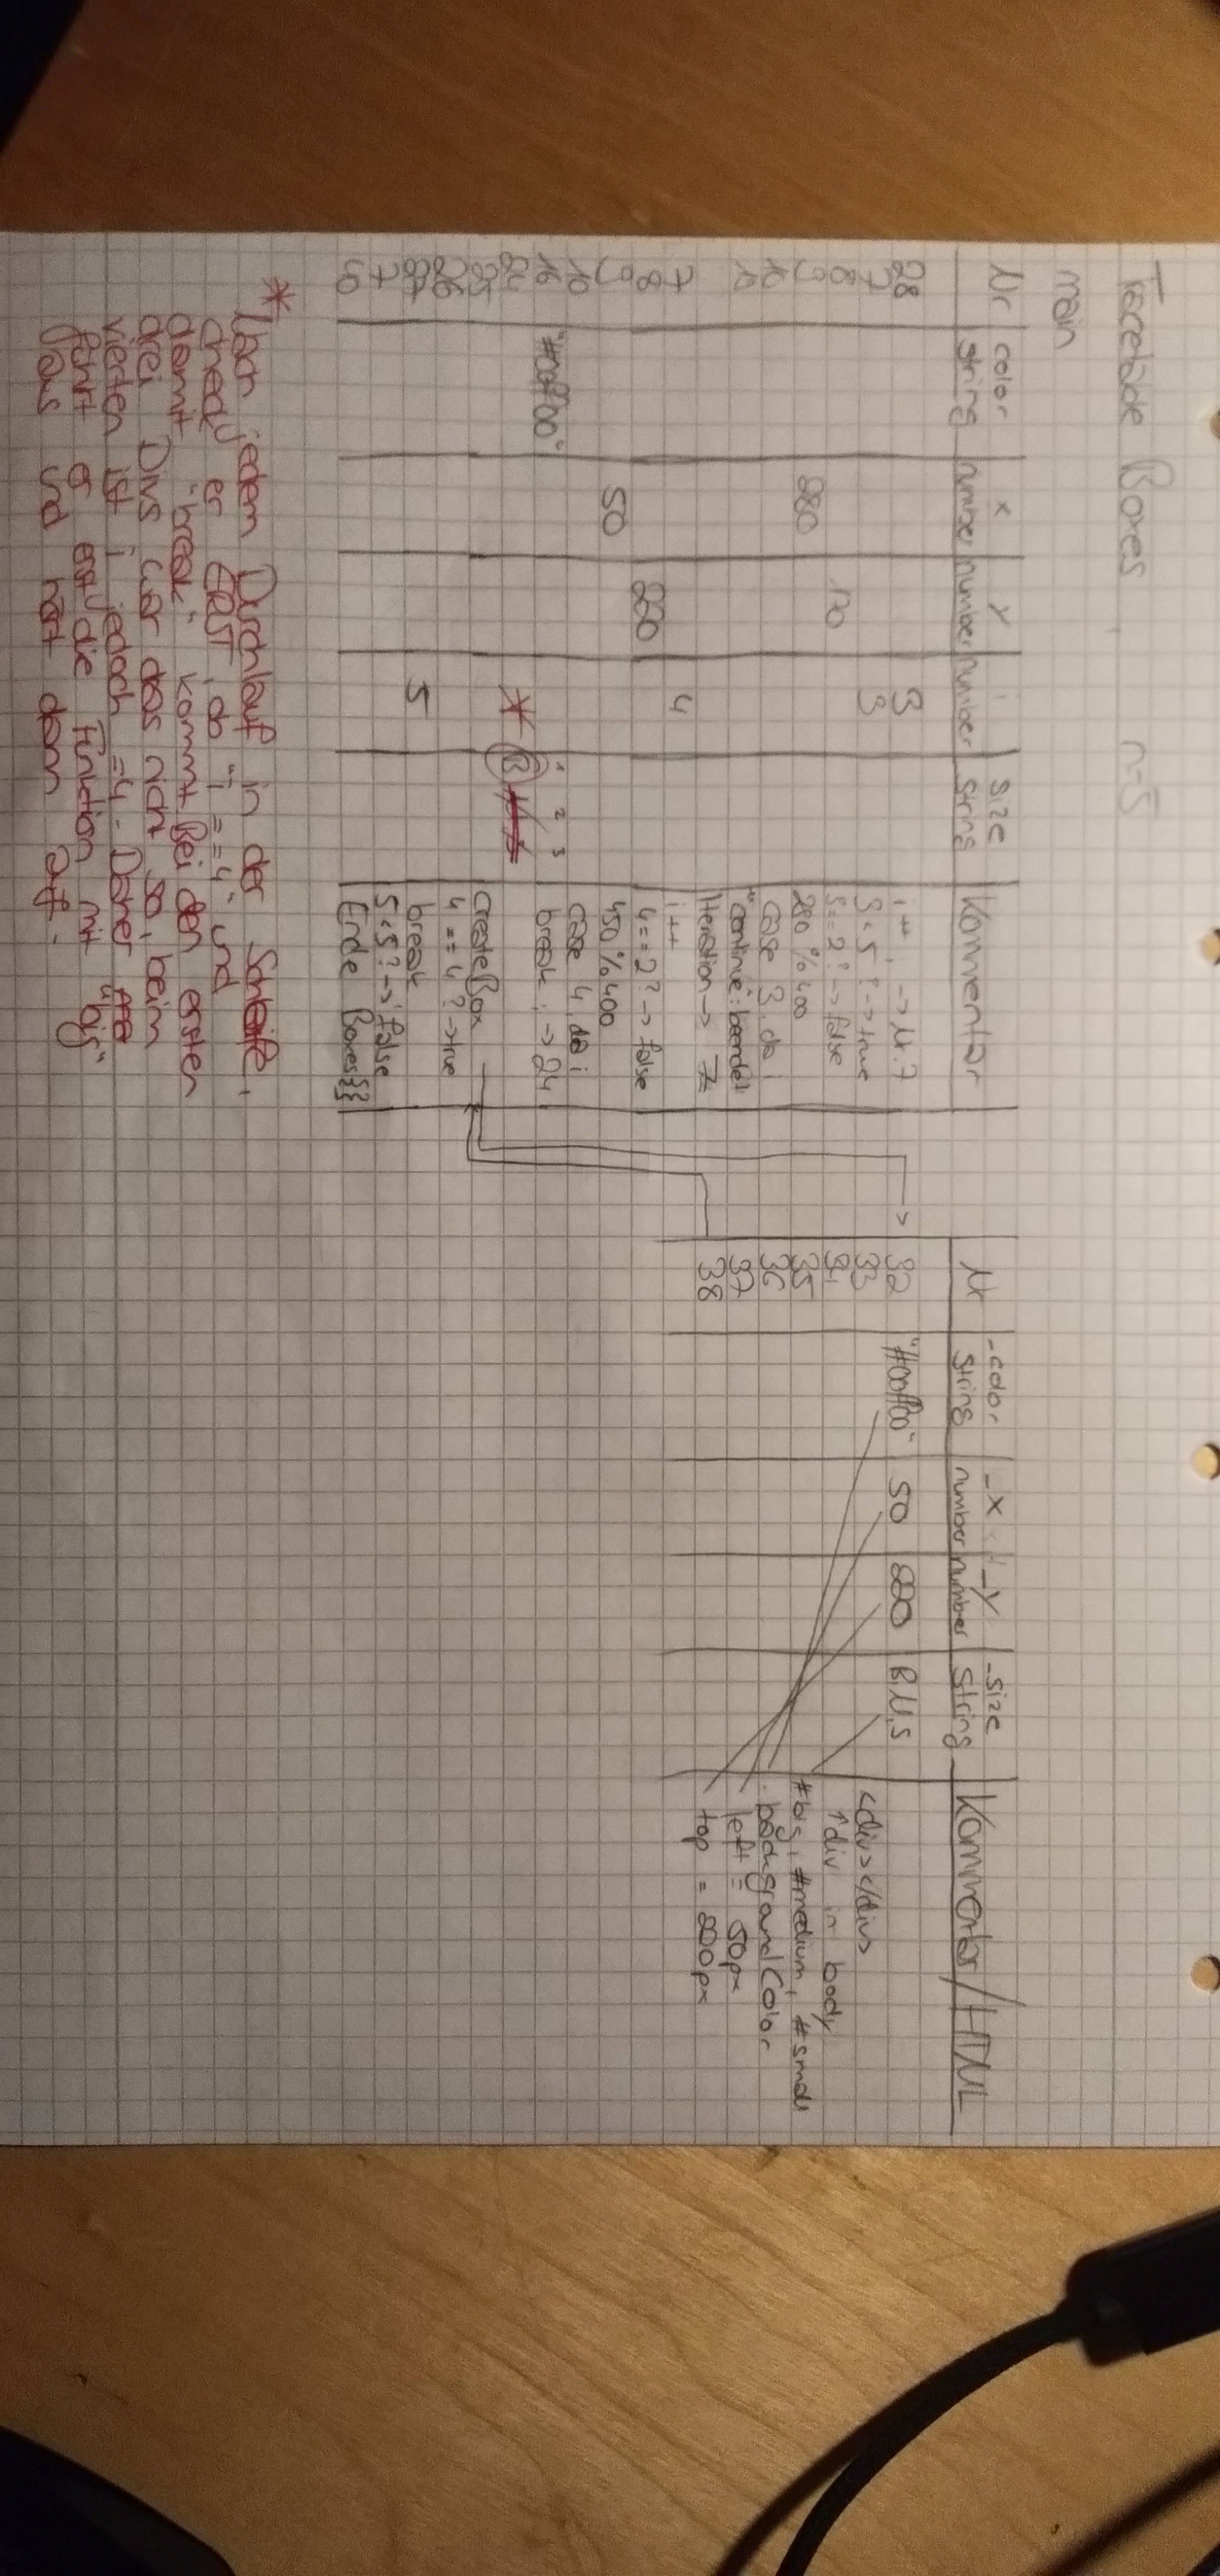 Tracetable Boxes, n=5
main
Nr color string x number y number i number size string Kommentar
28 3 i++; -> Nr. 7
7 3 3<5? -> true
8 170 3==2? -> false
9 280 280 % 400
10 case 3, da i
"continue": beendet
Iteration -> 7
7 4 i++
8 220 4==2? -> false
9 50 450 % 400
10 case 4, da i
16 "#00ff00" break; -> 24
1 2 3
24 * B
25 createBox
26 4 == 4? -> true
27 5 break
7 5<5? -> false
40 Ende Boxes{}
Nr _color string _x number _y number _size string Kommentar/HTML
32 "#00ff00" 50 220 B, M, S
33 <div></div>
34 ↑ div in body
35 #big, #medium, #small
36 backgroundColor
37 left = 50px
38 top = 220px
* Nach jedem Durchlauf in der Schleife,
check er ERST, ob "i==4" und
damit "break" kommt. Bei den ersten
drei Divs war das nicht so, beim
vierten ist i jedoch =4. Daher
führt er erst die Funktion mit "big"
aus und hört dann auf.